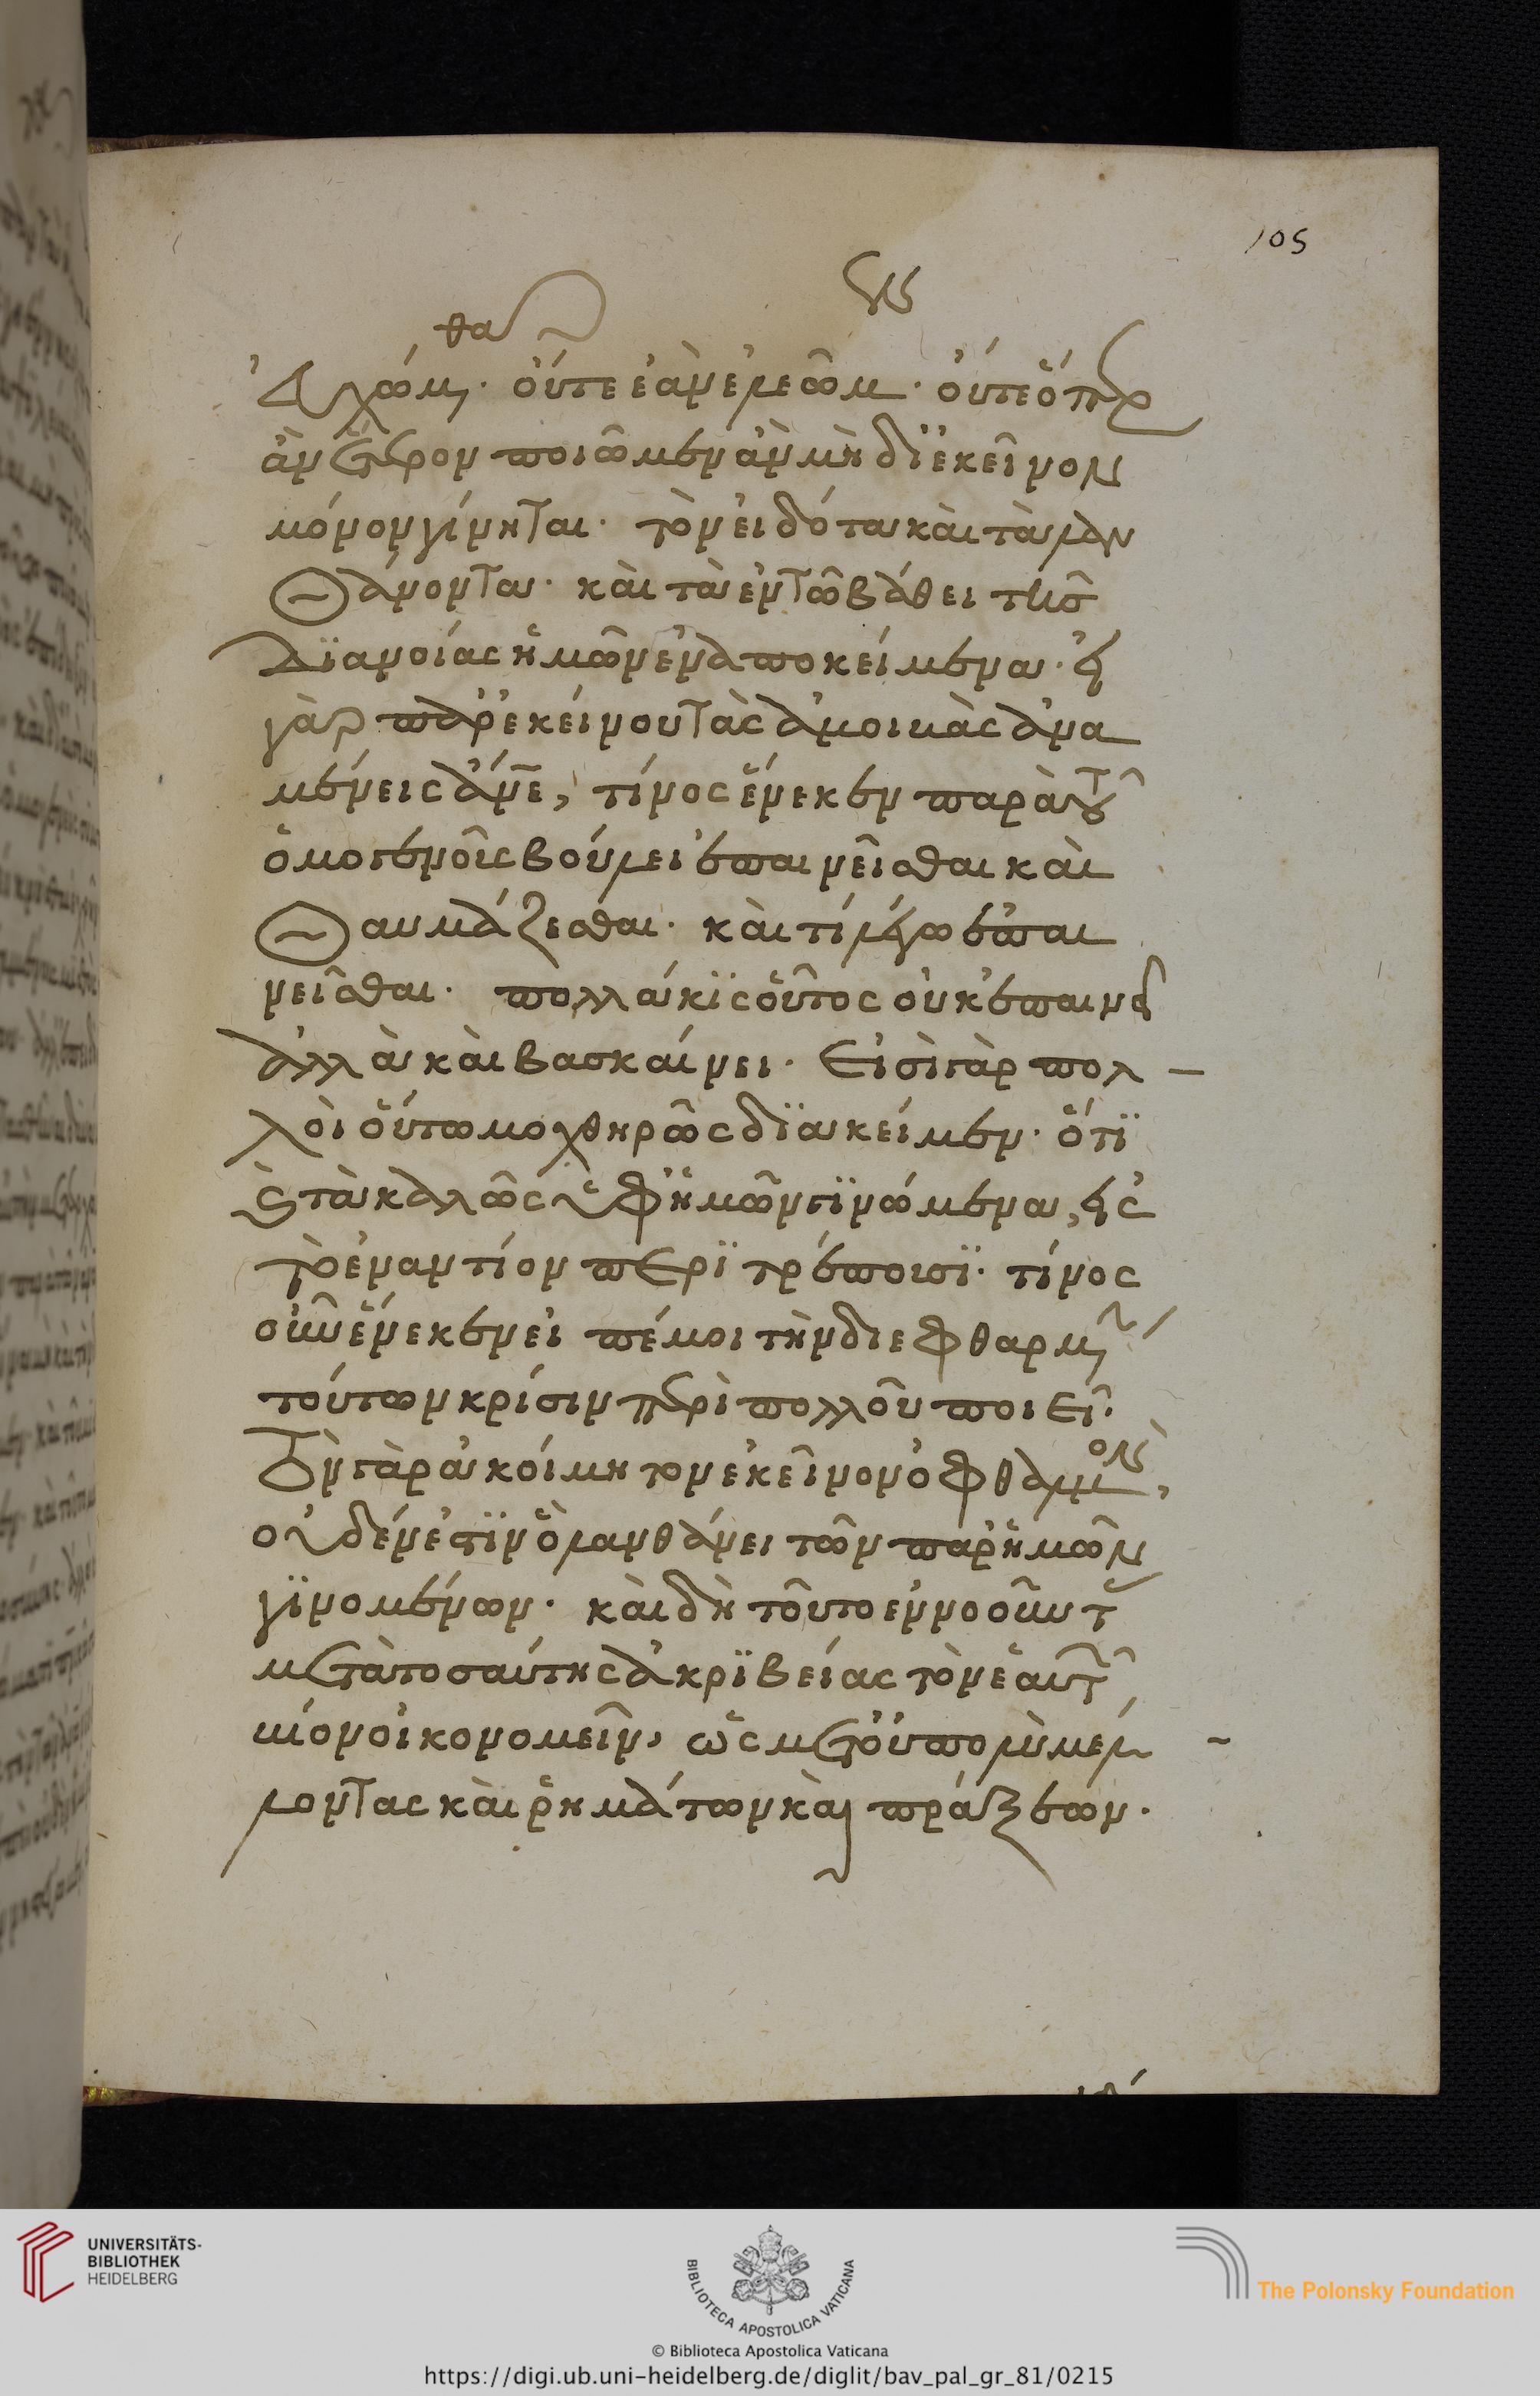 105
εὐχώμεθα. οὔτε ἐὰν ἐλεῶμεν. οὔτε ὅπερ
ἂν ἕτερον ποιῶμεν ἂν μὴ δι' ἐκεῖνον
μόνον γίνηται. τὸν εἰδότα καὶ τὰ λαν
θάνοντα. καὶ τὰ ἐν τῶ βάθει τῆς
διανοίας ἡμῶν ἐναποκείμενα. εἰ
γὰρ παρ' ἐκείνου τὰς ἀμοιβὰς ἀνα
μένεις ἄνε, τίνος ἕνεκεν παρὰ τοῦ
ὁμογενοῦς βούλει ἐπαινεῖσθαι καὶ
θαυμάζεσθαι. καὶ τί λέγω ἐπαι
νεῖσθαι. πολλάκϊς οὗτος οὐκ ἐπαινεῖ
ἀλλὰ καὶ βασκαίνει. Εἰσὶ γὰρ πολ
λοὶ οὕτω μοχθηρῶς δϊακείμεν. ὅτϊ
καὶ τὰ καλῶς ὑφ' ἡμῶν γϊνώμενα, εἰς
τὸ ἐναντίον περϊτρέπουσϊ. τίνος
οὖν ἕνεκεν εἰπέ μοι τὴν διεφθαρμένην
τούτων κρίσιν περὶ πολλοῦ ποιεῖ.
τὸν γὰρ ἀκοίμητον ἐκεῖνον ὀφθαλμὸν,
οὐδέν ἐστϊν ὃ λανθάνει τῶν παρ' ἡμῶν
γϊνομένων. καὶ δὴ τοῦτο ἐννοοῦντας
μετὰ τοσαύτης ἀκρϊβείας τὸν ἑαυτῶν
βίον οἰκονομεῖν, ὡς μετ' οὐ πολὺ μέλ
λοντας καὶ ῥημάτων καὶ πράξεων.
UNIVERSITÄTS-
BIBLIOTHEK
HEIDELBERG
BIBLIOTECA APOSTOLICA VATICANA
The Polonsky Foundation
© Biblioteca Apostolica Vaticana
https://digi.ub.uni-heidelberg.de/diglit/bav_pal_gr_81/0215